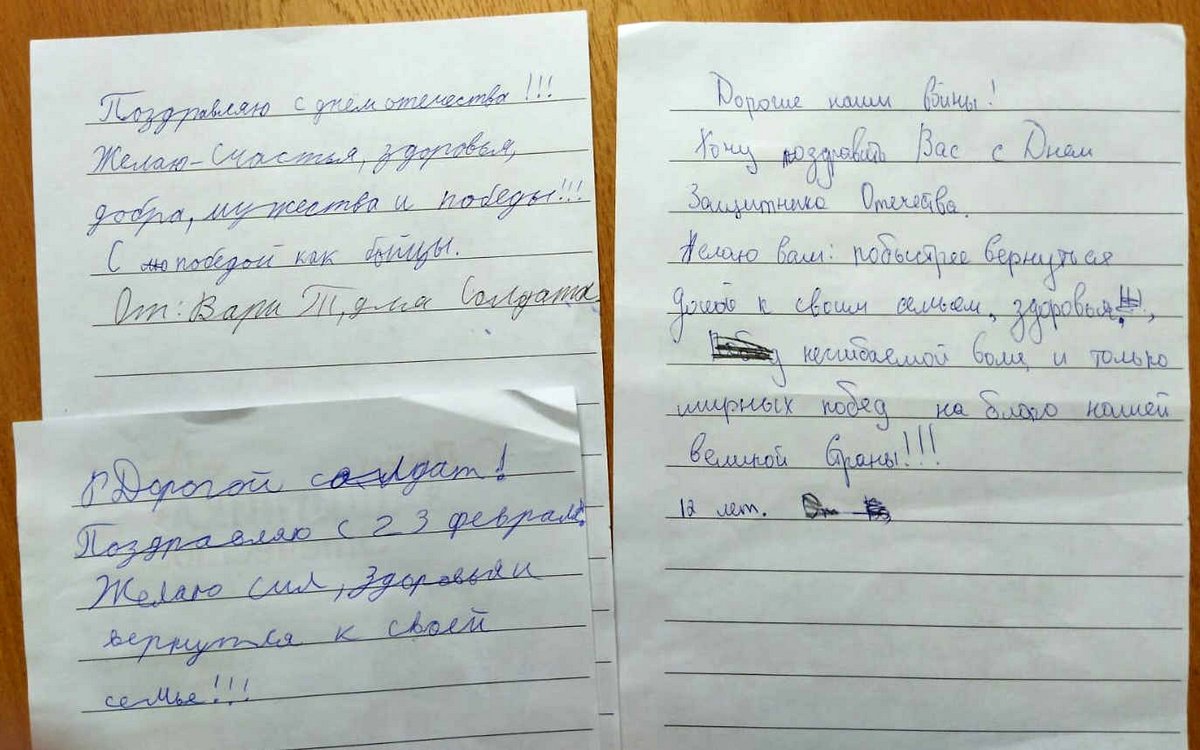 Поздравляю с днём отечества!!!
Желаю-счастья, здоровья,
добра, мужества и победы!!!
С победой как бойцы.
От: Вари Т, для Солдата
Дорогой солдат!
Поздравляю с 23 февраля!
Желаю сил, здоровья и
вернутся к своей
семье!!!
Дорогие наши войны!
Хочу поздравить Вас с Днем
Защитника Отечества.
Желаю вам: побыстрее вернуться
домой к своим семьем, здоровья!,
несгибаемой воли, и только
мирных побед на благо нашей
великой Страны!!!
12 лет.